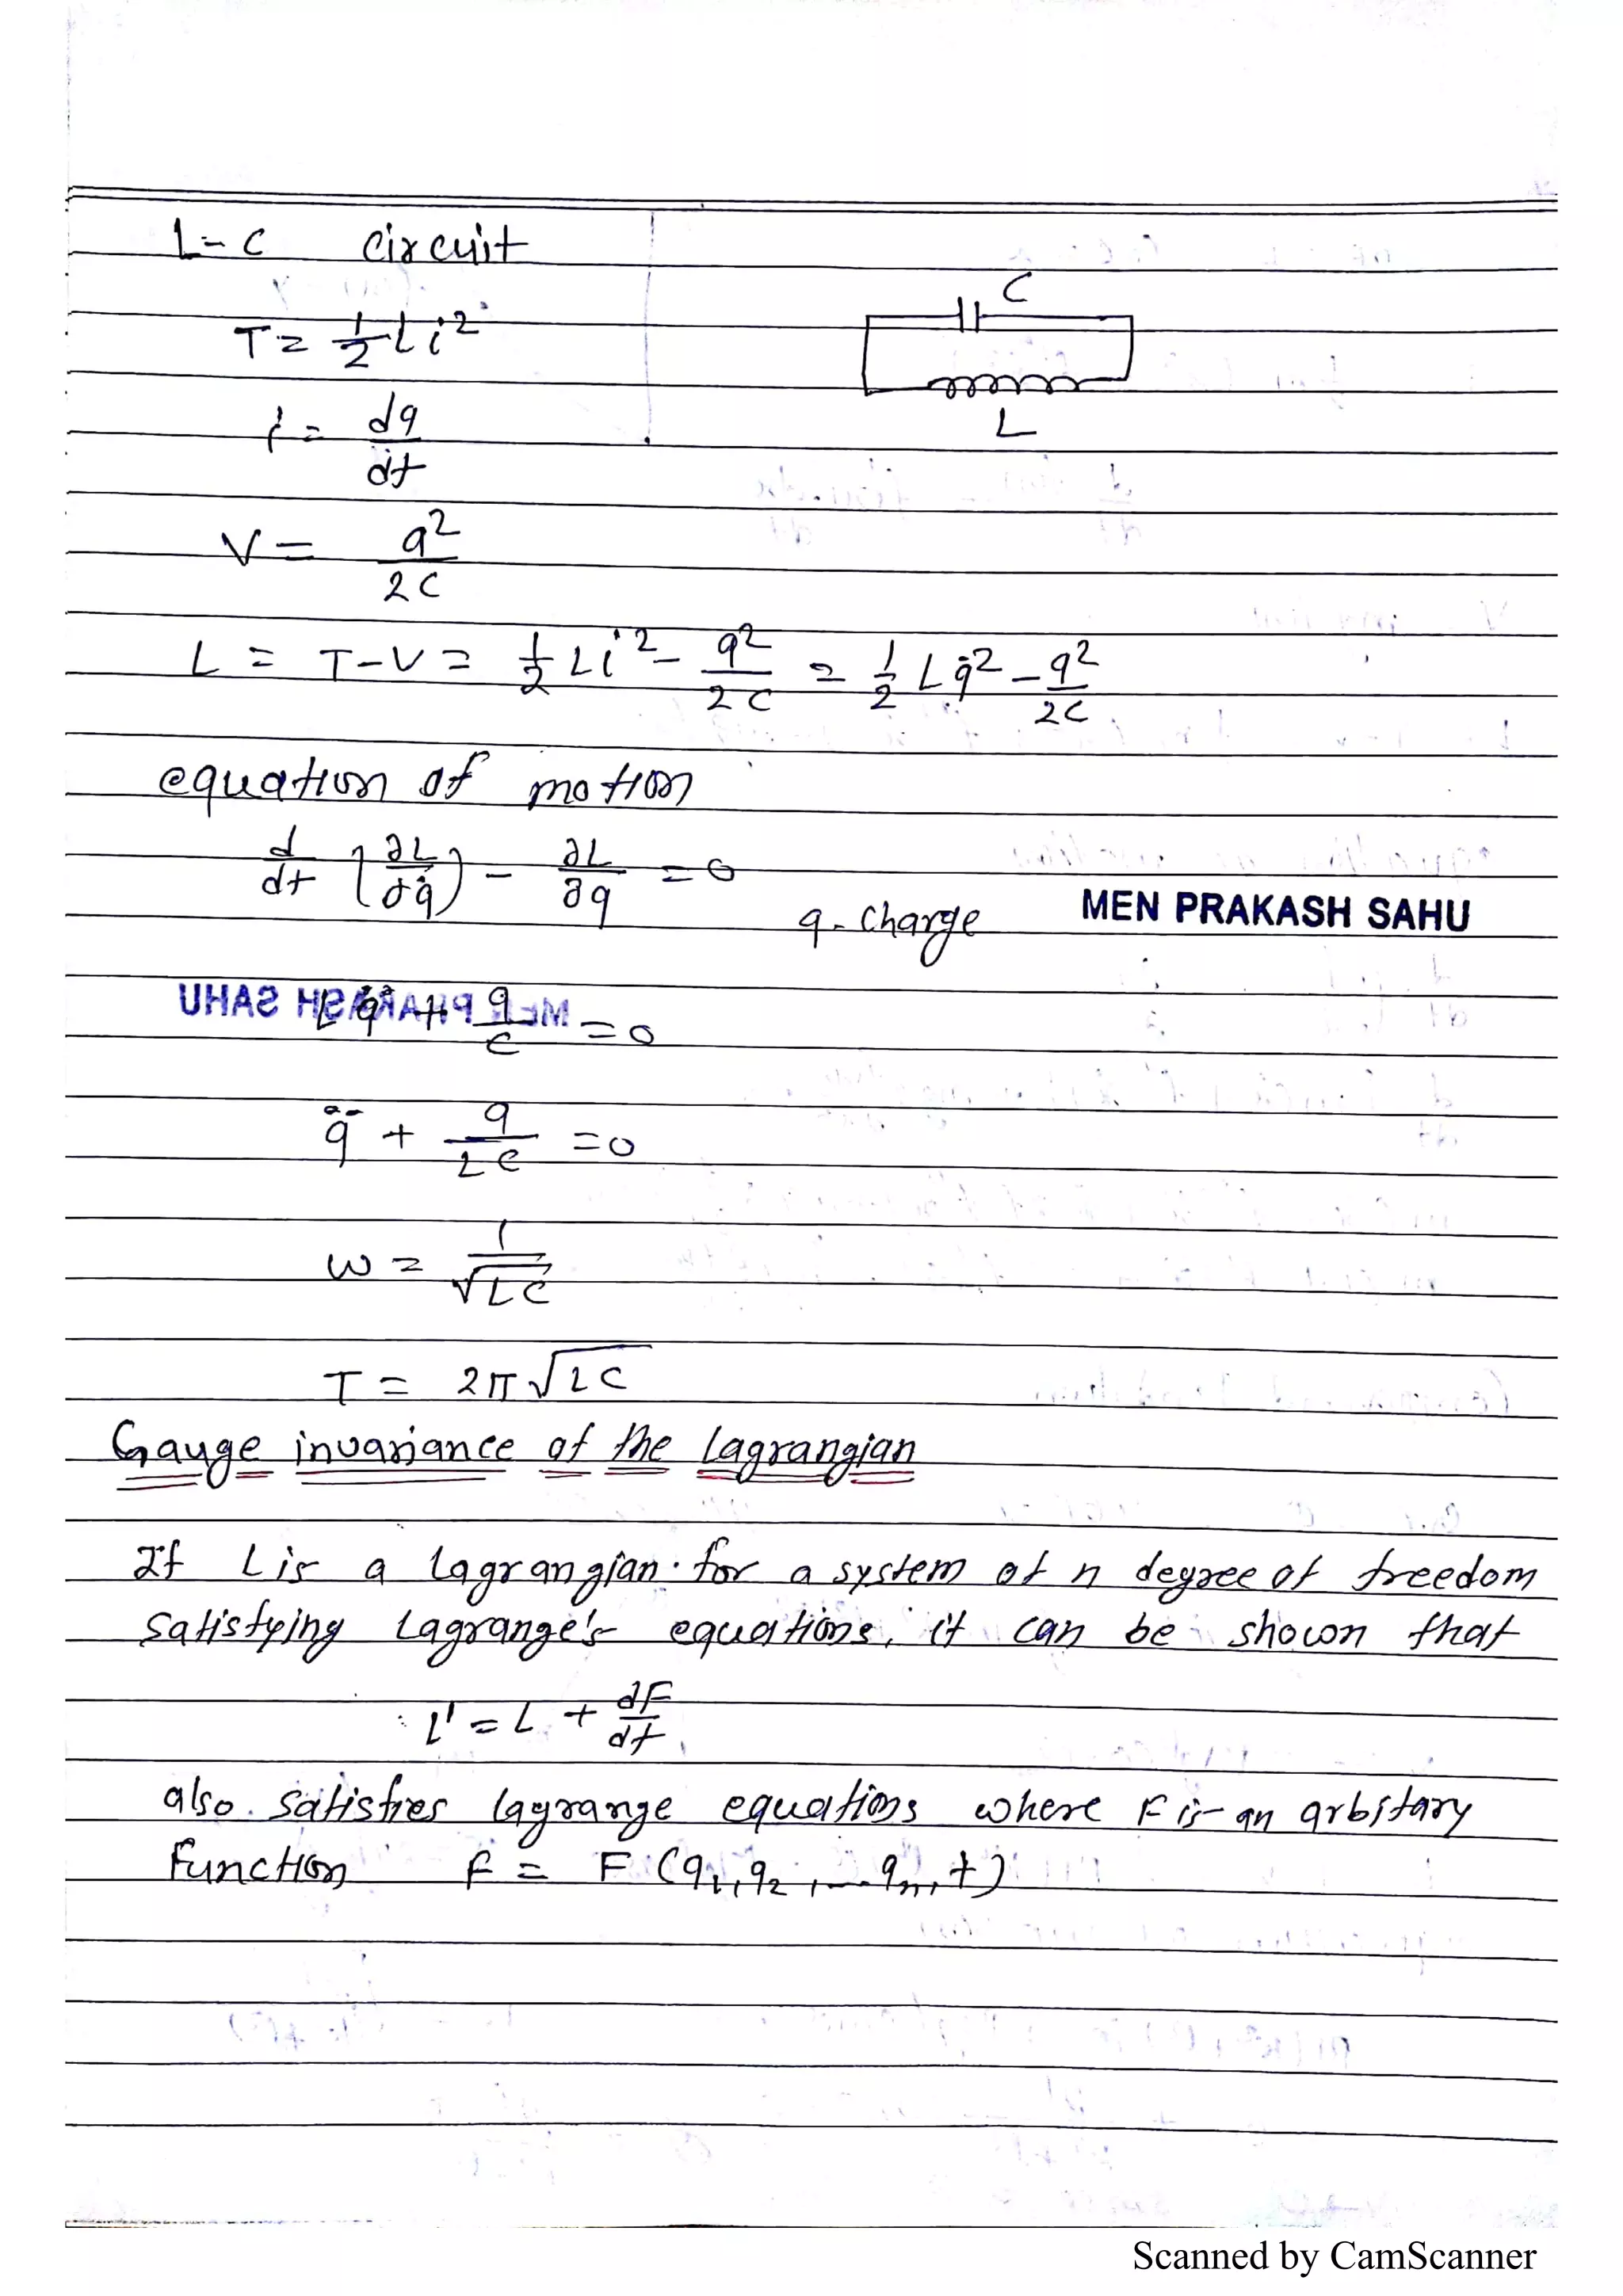 L-C circuit
C
T = 1/2 L i²
i = dq/dt
L
V = q²/2C
L = T-V = 1/2 Li² - q²/2C = 1/2 Lq̇² - q²/2C
equation of motion
d/dt (∂L/∂q̇) - ∂L/∂q = 0
q - charge
MEN PRAKASH SAHU
L q̈ + q/C = 0
q̈ + q/LC = 0
ω = 1/√LC
T = 2π√LC
Gauge invariance of the Lagrangian
If L is a lagrangian for a system of n degree of freedom
satisfying Lagrange's equations, it can be shown that
L' = L + dF/dt
also satisfies lagrange equations where F is an arbitary
Function F = F (q₁, q₂, ... qₙ, t)
Scanned by CamScanner